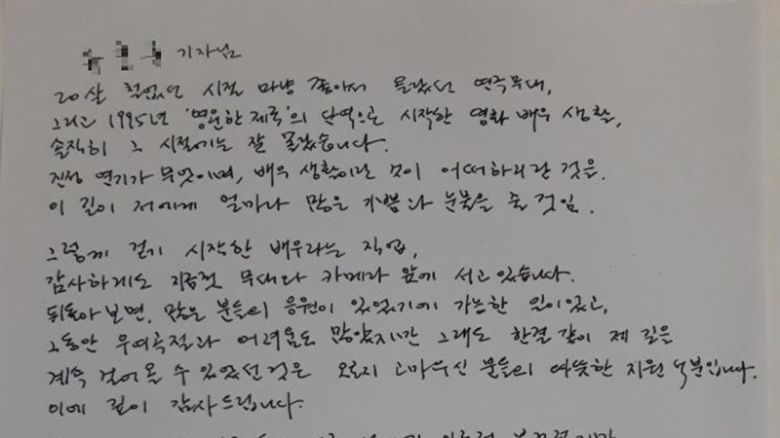 기자님
20살 철없던 시절 마냥 좋아서 올랐던 연극무대,
그리고 1995년 '영원한 제국'의 단역으로 시작한 영화 배우 생활,
솔직히 그 시절에는 잘 몰랐습니다.
진정 연기가 무엇이며, 배우 생활이란 것이 어떠하리란 것은.
이 길이 저에게 얼마나 많은 기쁨과 눈물을 줄 것임.
그렇게 걷기 시작한 배우라는 직업,
감사하게도 지금껏 무대와 카메라 앞에 서고 있습니다.
뒤돌아 보면, 많은 분들의 응원이 있었기에 가능한 일이었고,
그동안 우여곡절과 어려움도 많았지만 그래도 한결 같이 제 길은
계속 걸어올 수 있었던 것은 오로지 고마우신 분들의 따뜻한 지원 덕분입니다.
이에 깊이 감사드립니다.